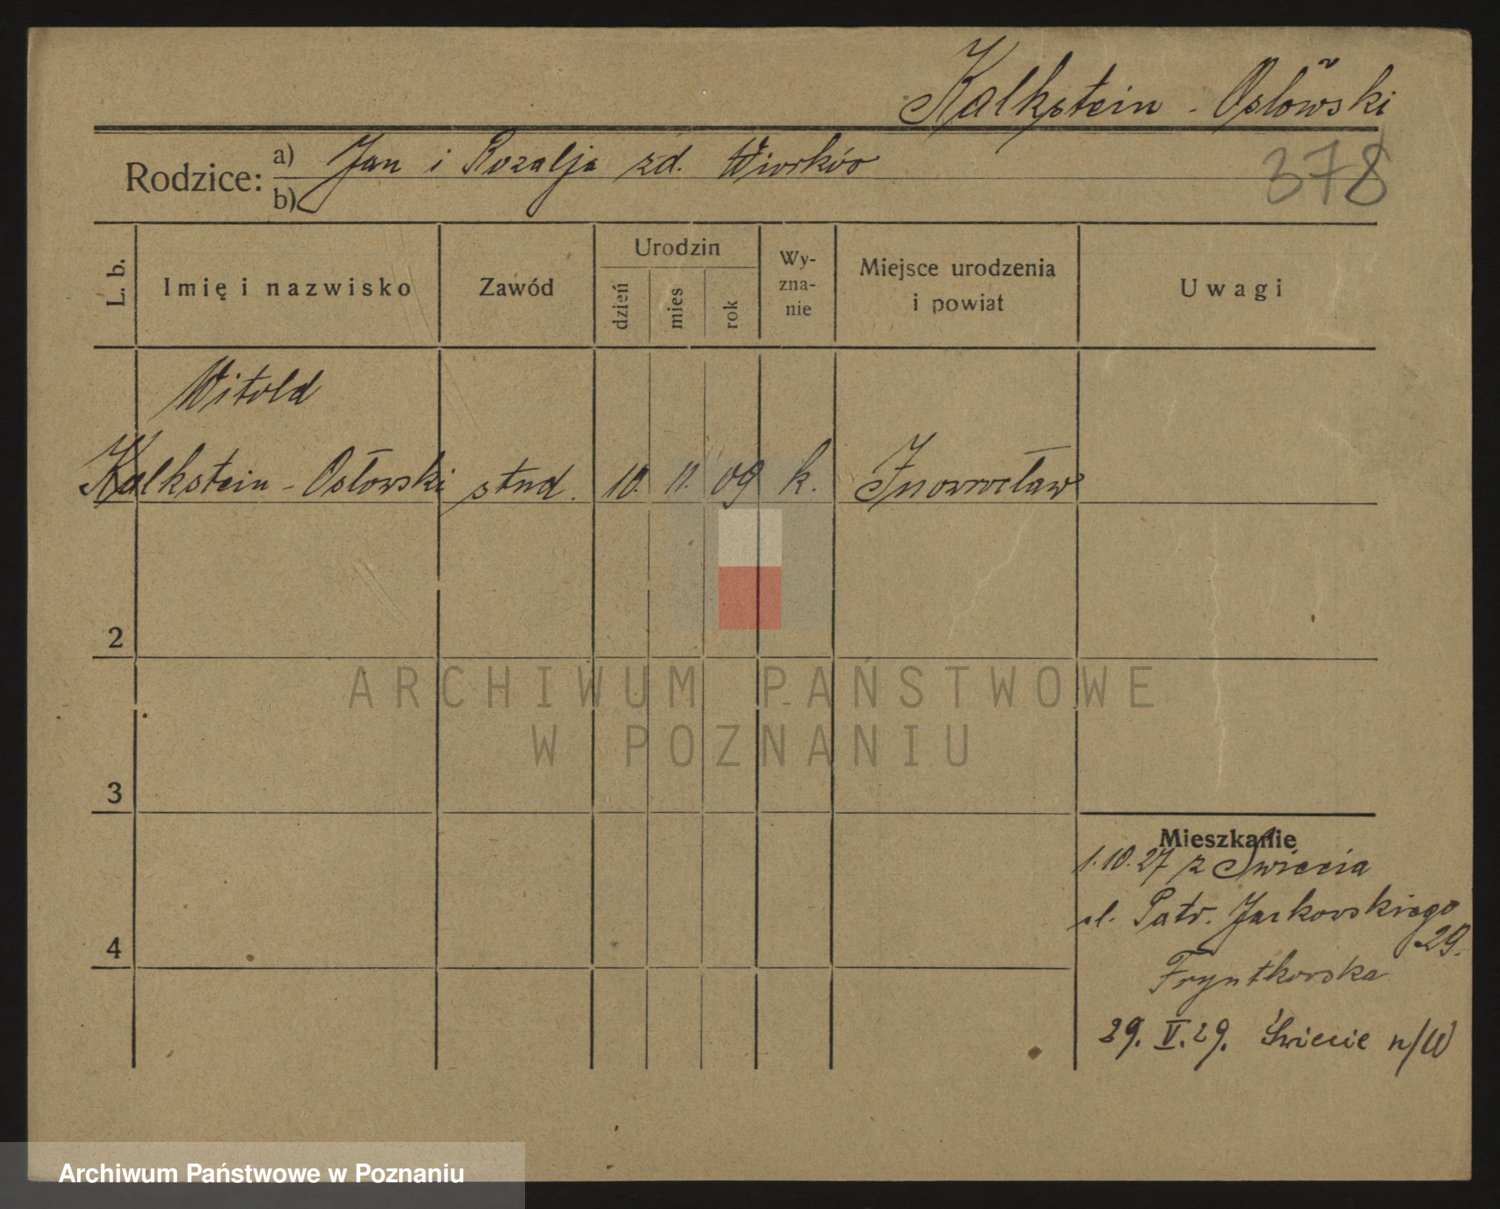 Kalkstein - Osłowski
Rodzice: a) Jan i Rozalja zd. Wiorków
b)
378
L. b.
Imię i nazwisko
Zawód
Urodzin
dzień
mies
rok
Wy-
zna-
nie
Miejsce urodzenia
i powiat
Uwagi
Witold
Kalkstein - Osłowski stud. 10. 11. 09 k. Inowrocław
2
3
4
Mieszkanie
1.10.27 z Swiecia
ul. Patr. Jackowskiego
29.
29. V. 29. Świecie n/W
ARCHIWUM PAŃSTWOWE
W POZNANIU
Archiwum Państwowe w Poznaniu